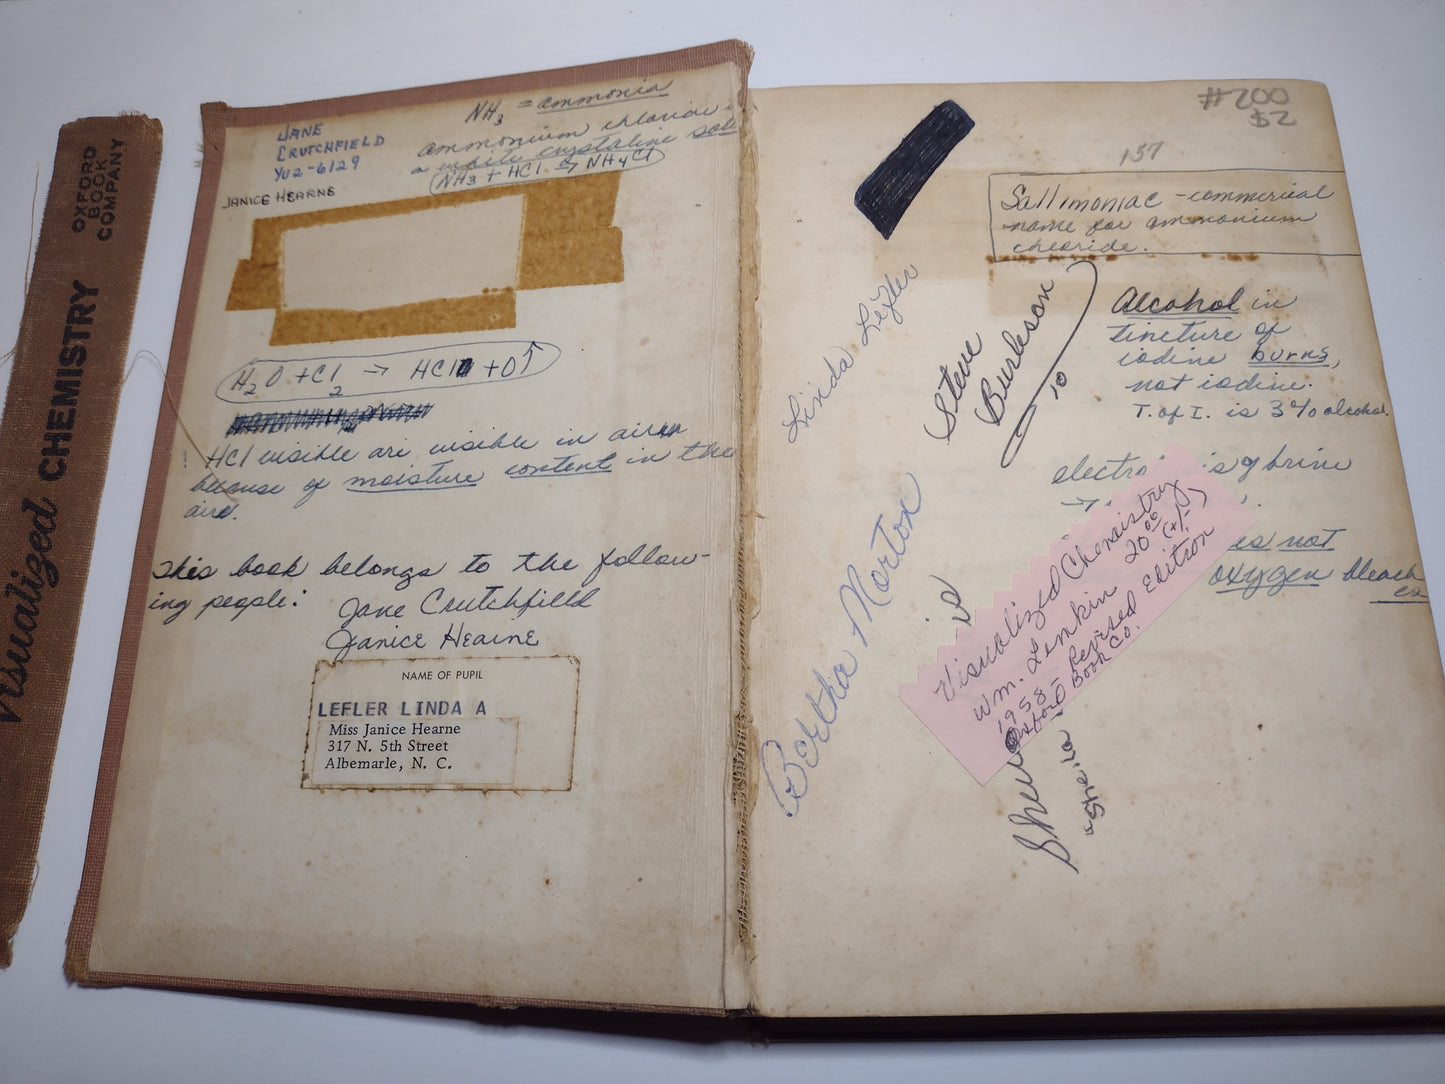 Visualized CHEMISTRY
OXFORD
BOOK
COMPANY
NH3 = ammonia
JANE
CRUTCHFIELD
YU2-6129
JANICE HEARNE
ammonium chloride
a white crystaline
NH3 + HCl → NH4Cl
H2O + Cl2 → HCl + O↑
HCl visible are visible in air
because of moisture content in the
air.
This book belongs to the follow-
ing people:
Jane Crutchfield
Janice Hearne
NAME OF PUPIL
LEFLER LINDA A
Miss Janice Hearne
317 N. 5th Street
Albemarle, N. C.
#200
$2
157
Sallimoniac - commerical
name for ammonium
chloride.
Linda Lefler
Steve
Burleson
10
Alcohol in
tincture of
iodine burns,
not iodine.
T. of I. is 3% alcohol.
of brine
→
not
oxygen bleach
Bertha Morton
is
Visualized Chemistry
Wm. Lemkin 20.00 (+/-)
1958 - Revised Edition
Oxford Book Co.
"Sheila